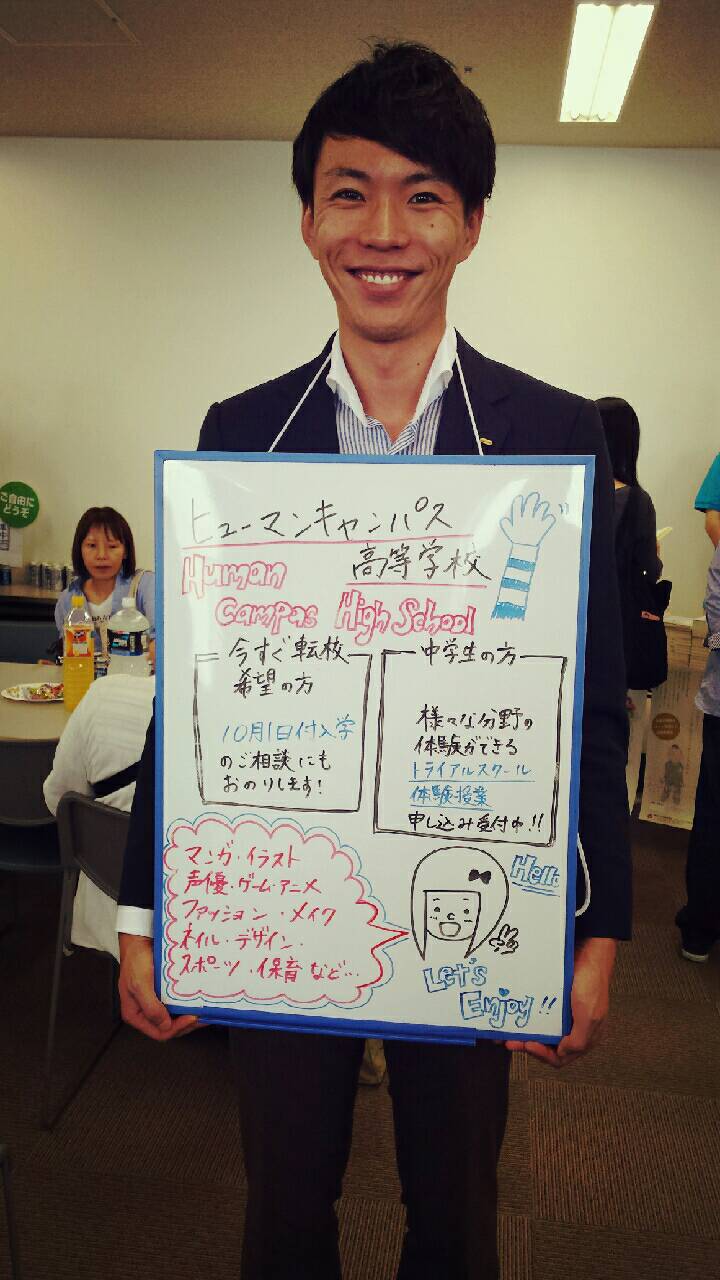 ヒューマンキャンパス
高等学校
Human
Campas High School
今すぐ転校
希望の方
10月1日付入学
のご相談にも
おのりします!
中学生の方
様々な分野の
体験ができる
トライアルスクール
体験授業
申し込み受付中!!
マンガ・イラスト
声優・ゲーム・アニメ
ファッション・メイク
ネイル・デザイン・
スポーツ・保育 など…
Hello
Let's
Enjoy!!
ご自由に
どうぞ